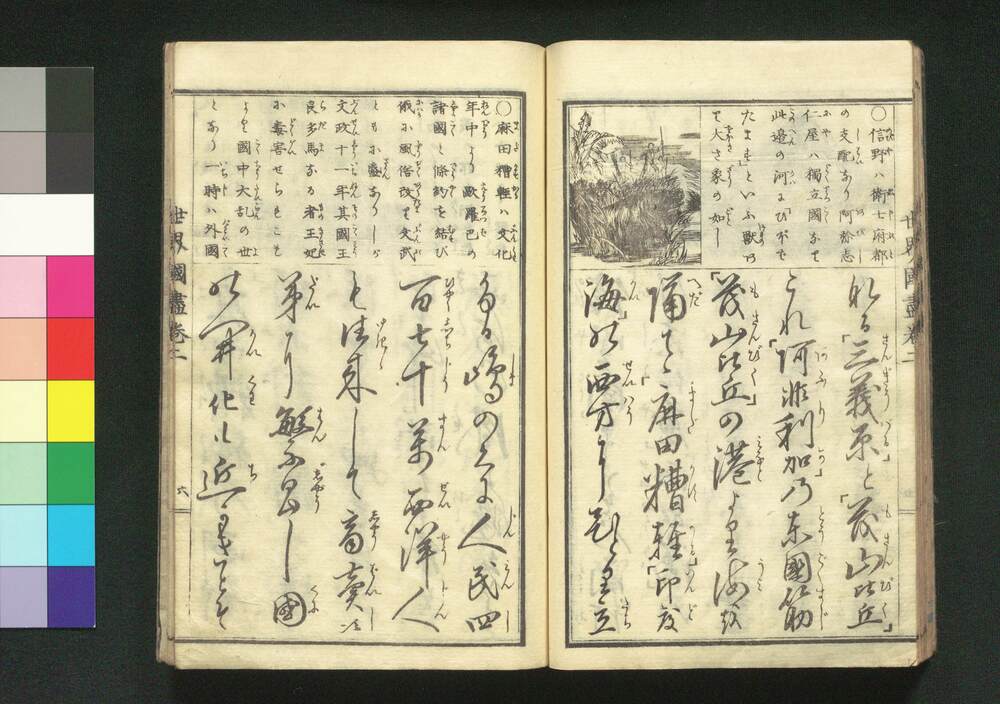 〇信野ハ衛士府都
の支配なり阿弥志
仁屋ハ獨立國なり
此邊の河にひぽで
たますといふ獣あり
て大さ象の如し
なる「三義原」と「茂山比丘」
これ「阿非利加」の東國筋
「茂山比丘」の港より海路
隔てし「麻田糟軽」「印度
海」の西方に
世界國盡巻二
〇麻田糟軽ハ文化
年中より歐羅巴の
諸國と條約を結び
俄に風俗改て文武
ともに盛なりしが
文政十一年其國王
良多馬なる者王妃
に毒害せられしこと
より國中大乱の世
となり一時ハ外國
たる嶋の人民四
百七十萬西洋人
も往来して商賣次
第に繁昌し國
の開化も近きこと
世界國盡巻二
六